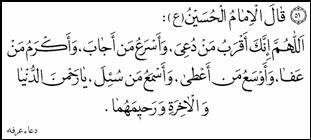 (۵۱) قالَ الْاِمامُ الْحُسَیْنُ(ع):
اَللّهُمَّ اِنَّكَ اَقْرَبُ مَنْ دُعِیَ، وَاَسْرَعُ مَنْ اَجابَ، وَاَكْرَمُ مَنْ
عَفا، وَاَوْسَعُ مَنْ اَعْطى، وَاَسْمَعُ مَنْ سُئِلَ، یا رَحْمنَ الدُّنْیا
وَ الْاخِرَةِ وَ رَحیمَهُما.
دعاء عرفه